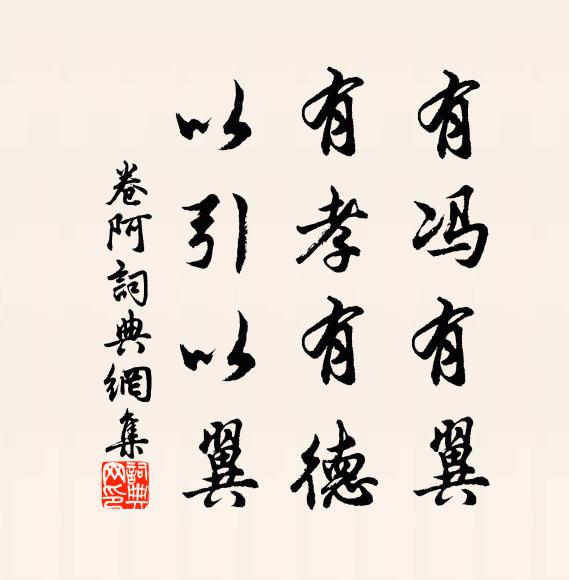 有冯有翼
有孝有德
以引以翼
卷阿詞典網集
詞典网印